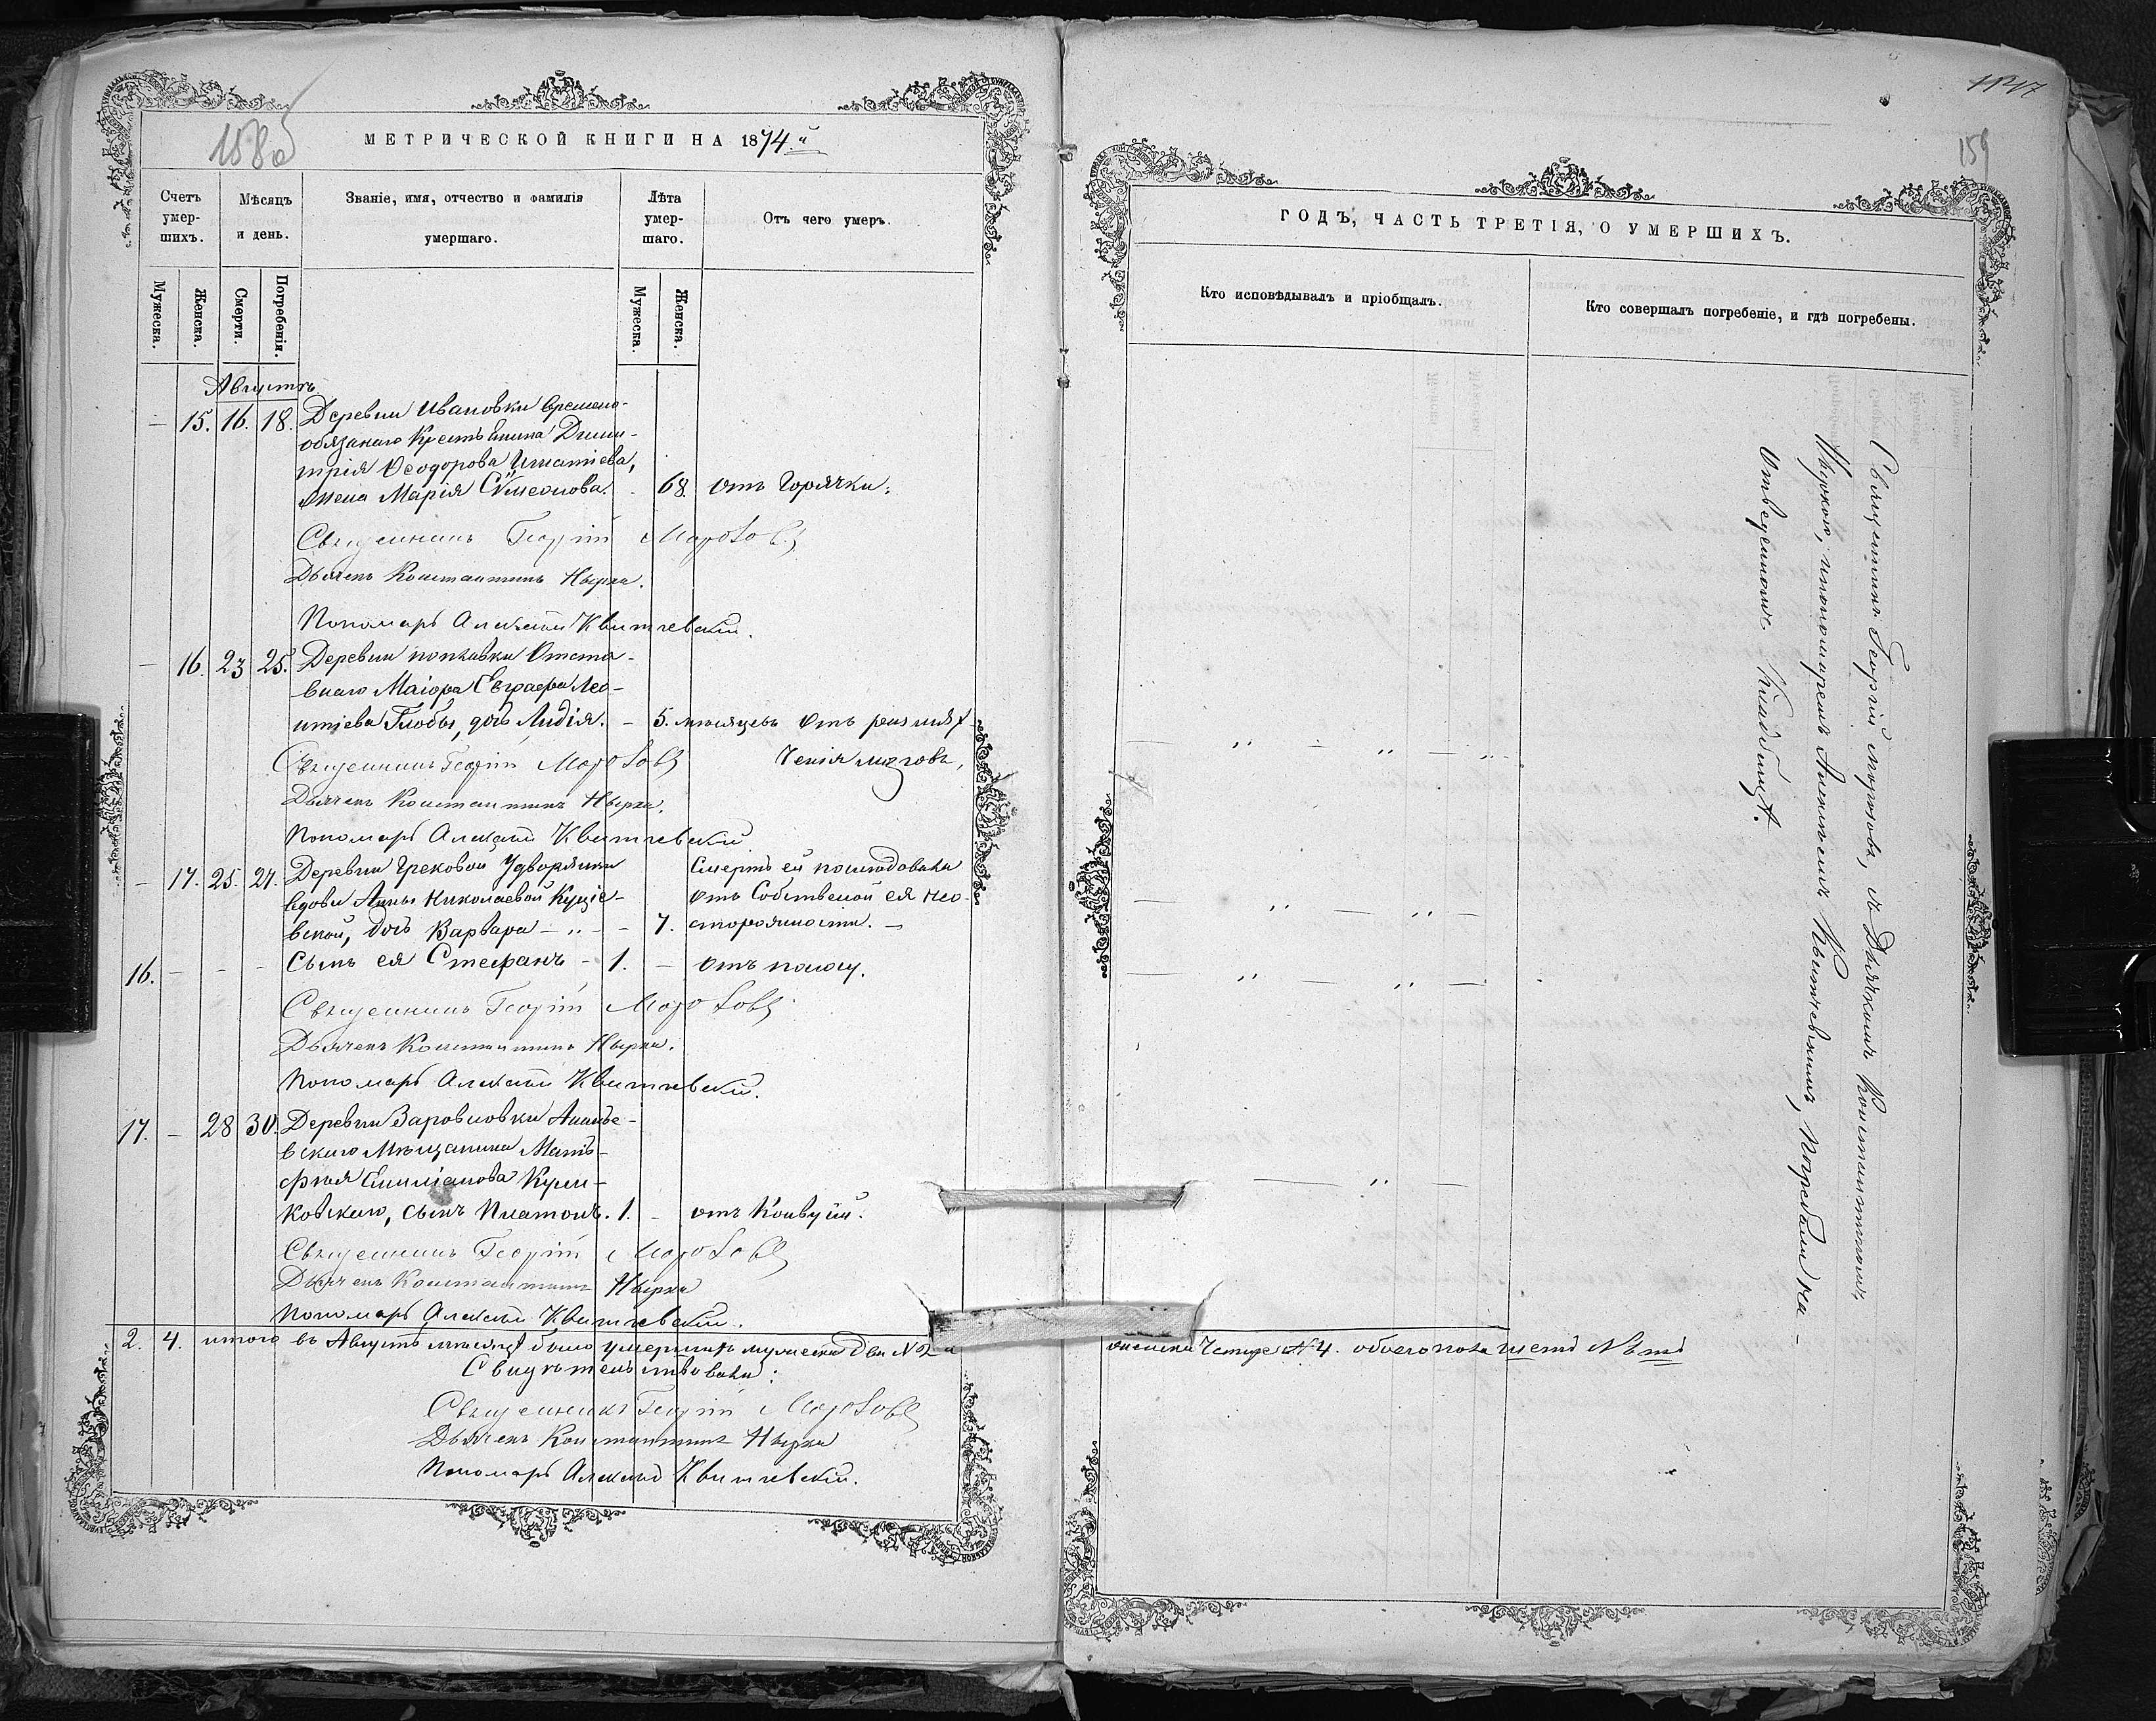 158об
МЕТРИЧЕСКОЙ КНИГИ НА 1874.й
Счетъ умер-шихъ.
Мѣсяцъ и день.
Званіе, имя, отчество и фамилія умершаго.
Лѣта умер-шаго.
Отъ чего умеръ.
Мужеска.
Женска.
Смерти.
Погребенія.
Мужеска.
Женска.
Августъ
— 15. 16. 18. Деревни Ивановки Времено-
обязанаго Крестьянина Дими-
трія Ѳеодорова Игнатіева,
жена Марія Сѵмеонова. - 68. отъ Горячки.
Священникъ Георгій Морозовъ
Дьячекъ Константинъ Нырка.
Пономарь Алексѣй Квитчевскій.
— 16. 23 25. Деревни Отста-
внаго Маіора Евграфа Лео-
нтіева Глобы, дочь Лидія. — 5. мѣсяцевъ Отъ размяг
ченія мозговъ.
Священникъ Георгій Морозовъ
Дьячекъ Константинъ Нырка.
Пономарь Алексѣй Квитчевскій
— 17. 25. 27. Деревни Грековой Удворянки
вдовы Анны Николаевой
вской, дочь Варвара — „ — — 7.
Смерть ей
отъ Собственой ея нео-
сторожности. —
16. — — — Сынъ ея Стефанъ — 1. — отъ поносу.
Священникъ Георгій Морозовъ
Дьячекъ Константинъ Нырка.
Пономарь Алексѣй Квитчевскій.
17. — 28 30. Деревни Заровновки Ананье-
вскаго Мѣщанина Матъ-
фѣя Емиліанова
ковскаго, сынъ Платонъ. 1. — отъ Конвулій.
Священникъ Георгій Морозовъ
Дьячекъ Константинъ Нырка
Пономарь Алексѣй Квитчевскій.
2. 4. итого въ Августѣ мѣсяцѣ было умершихъ мужеска два №2 и
Свидѣтельствовали:
Священникъ Георгій Морозовъ
Дьячекъ Константинъ Нырка
Пономарь Алексѣй Квитчевскій.
159
ГОДЪ, ЧАСТЬ ТРЕТІЯ, О УМЕРШИХЪ.
Кто исповѣдывалъ и пріобщалъ.
Кто совершалъ погребеніе, и гдѣ погребены.
Священникъ Георгій Морозовъ, съ Дьячкомъ Константиномъ
Ныркою, и пономаремъ Алексѣемъ Квитчевскимъ, Погребали на-
Отведенномъ Кладбищѣ.
— „ — „ — „
— „ — „ —
— „ — „ —
— „ —
женска Четыре №4. обоего пола шесть №6ть